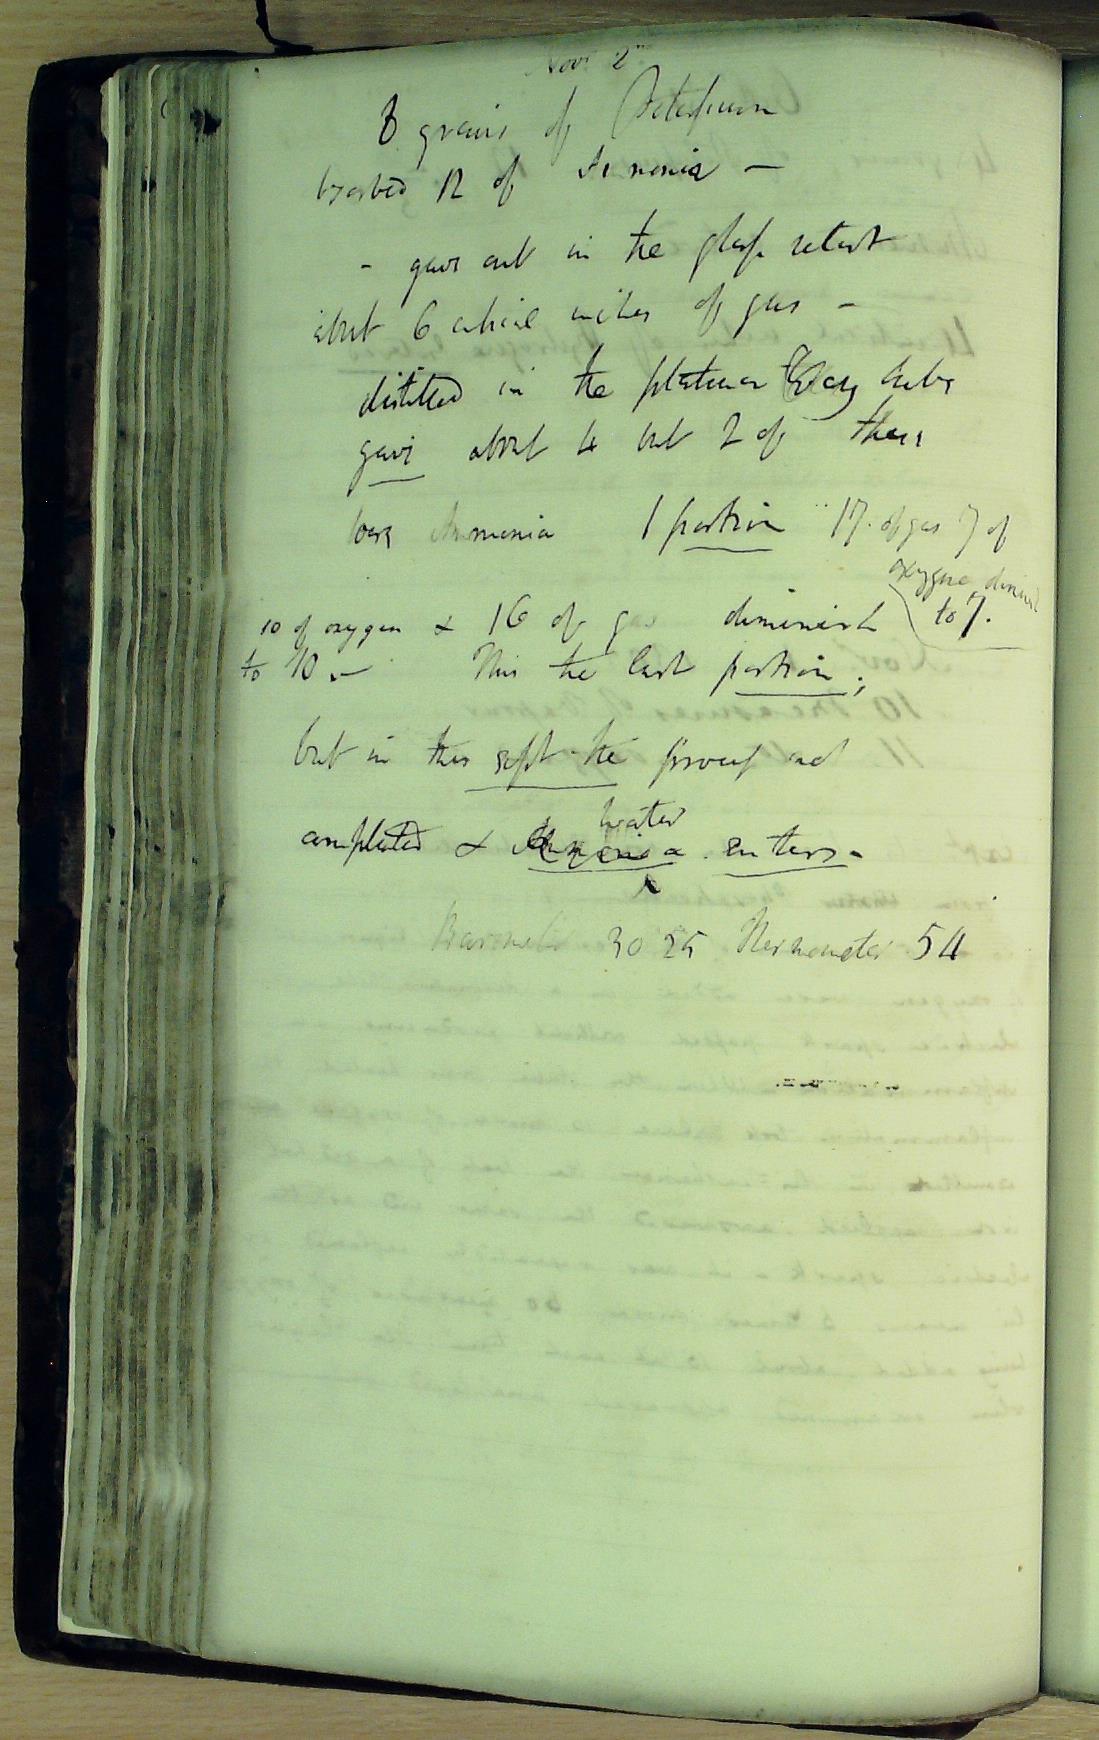 Novr 2nd
8 grains of Potassium
absorbed 12 of Ammonia —
- gave out in the glass retort
about 6 cubical inches of gas -
distilled in the platina tube
gave about 4 but 2 of these
were Ammonia 1 portion 17. of gas 7 of
oxygene diminish
to 7.
10 of oxygen & 16 of gas diminish
to 10 - This the last portion;
but in this expt the process not
water
completed & Ammonia enters -
Barometer 30 25 Thermometer 54